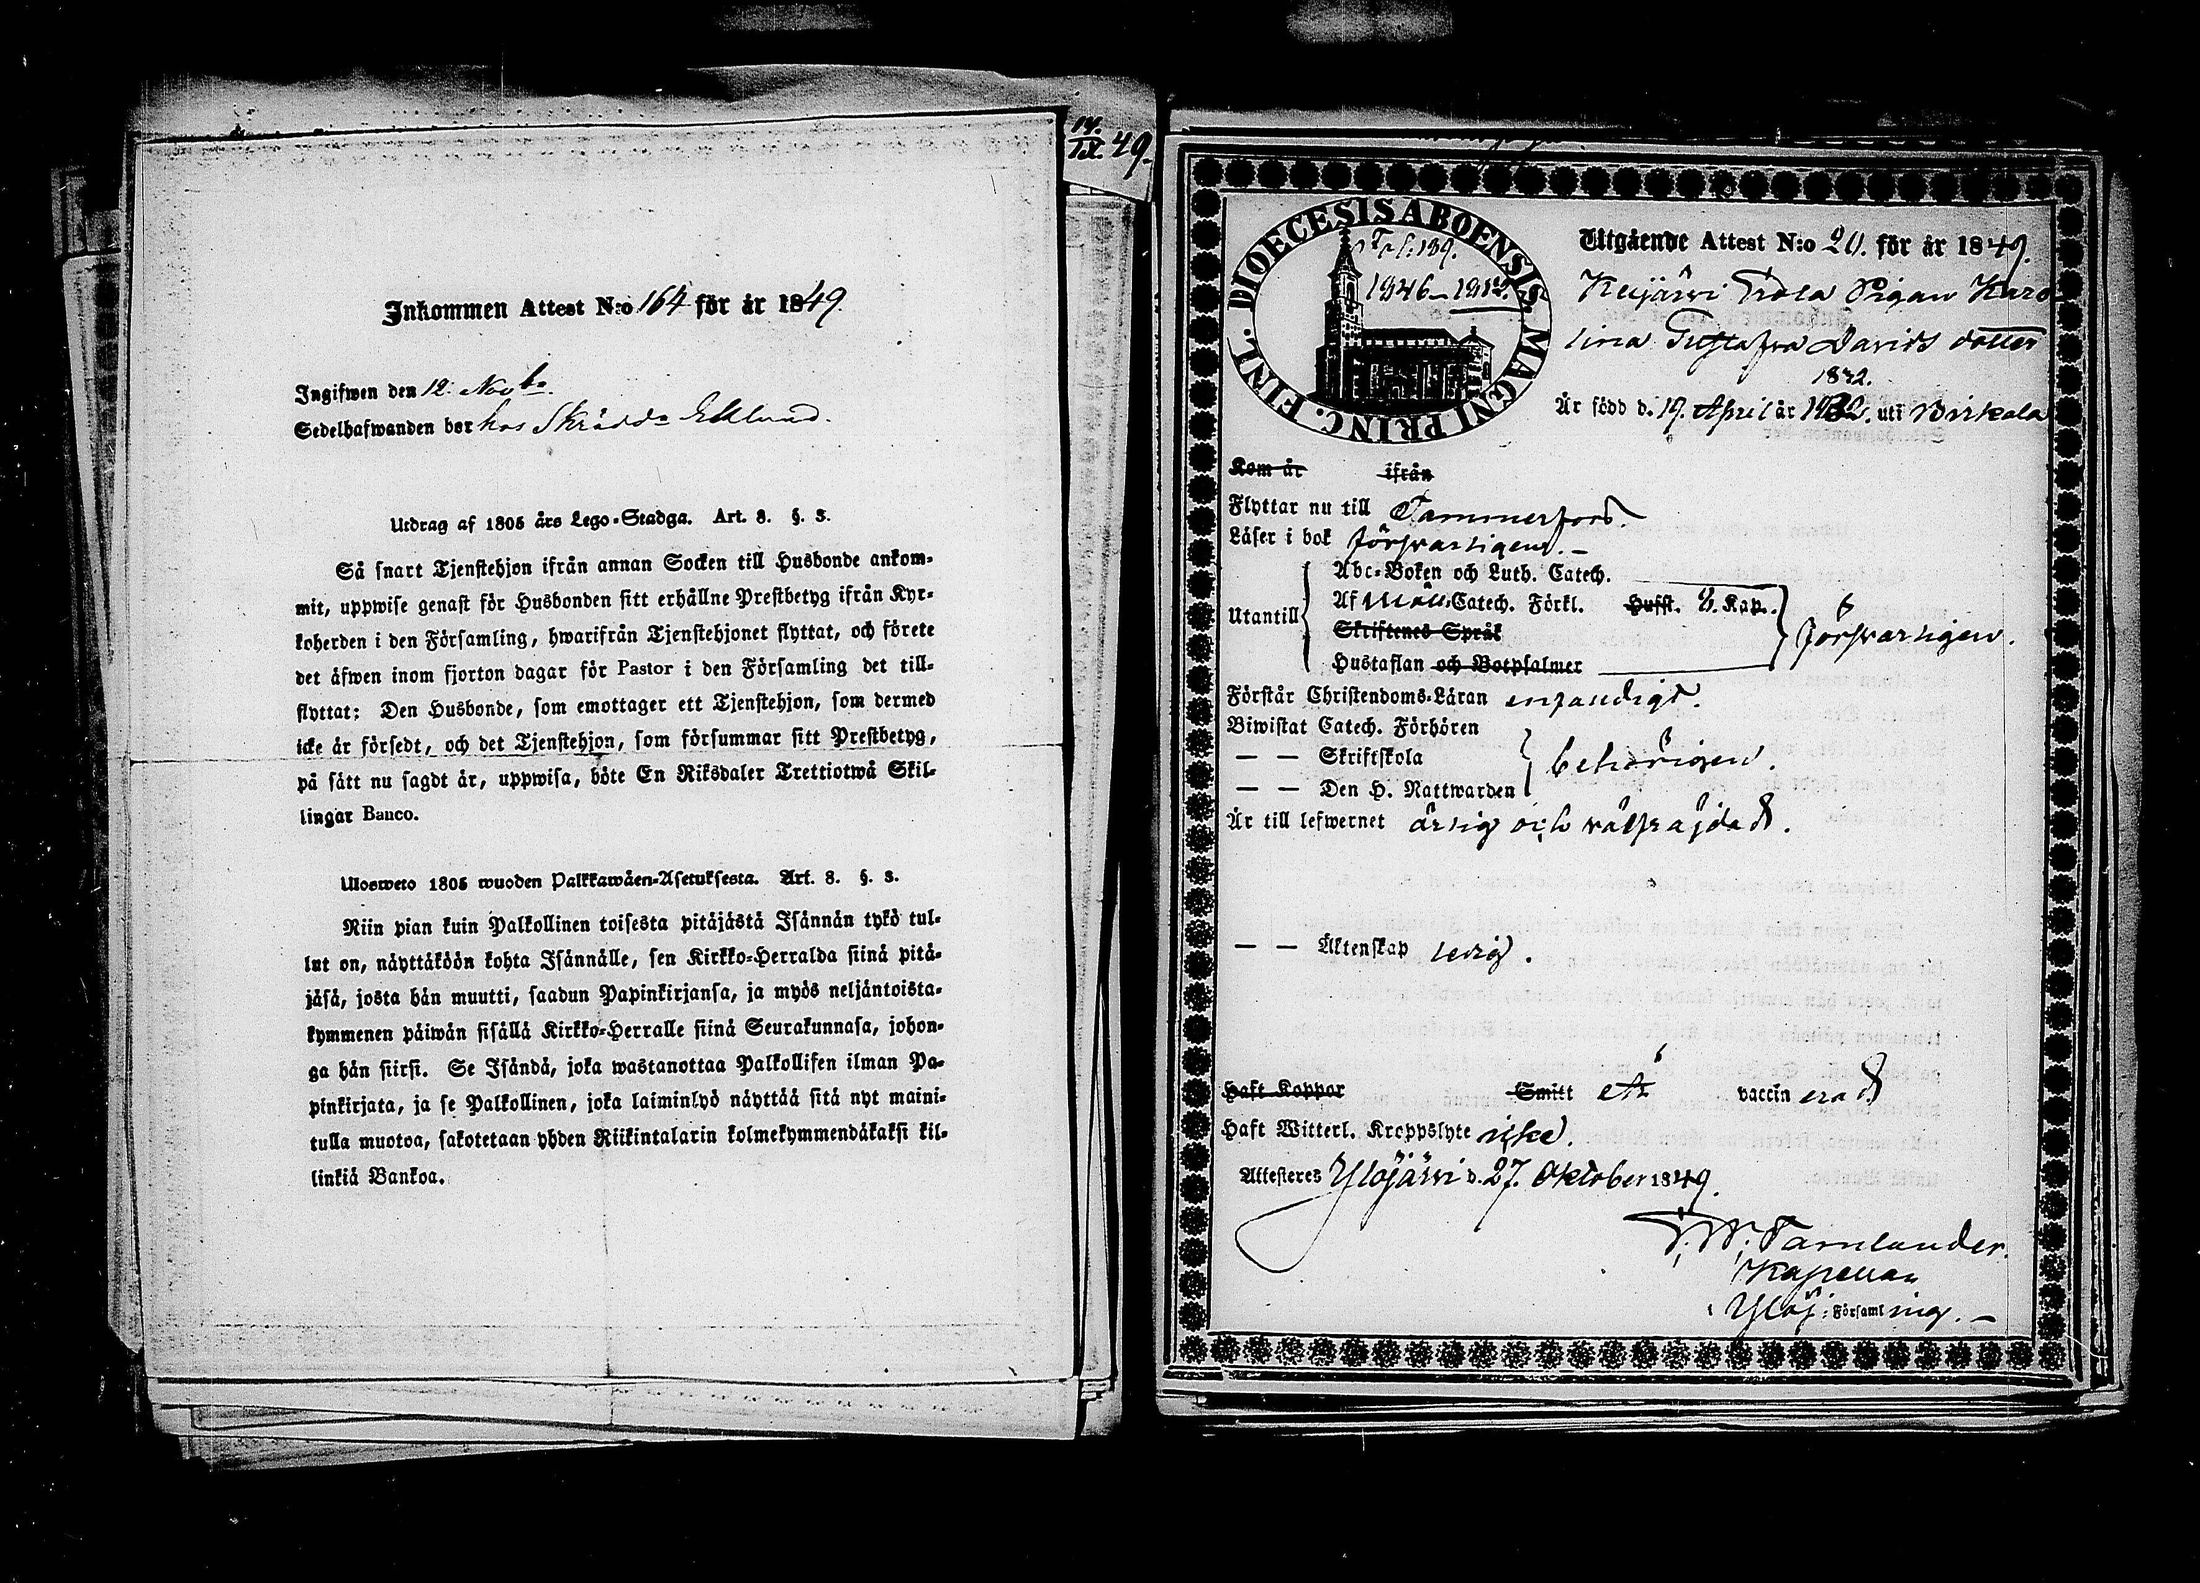 14.
Tal. 49.
Inkommen Attest N:o 164 för år 1849.
Ingifwen den 12. Novbr.
Sedelhafwanden bor hos Skrädd Eklund.
Utdrag af 1805 års Lego-Stadga. Art. 8. §. 3.
Så snart Tjenstehjon ifrån annan Socken till Husbonde ankom-
mit, uppwise genast för Husbonden sitt erhållne Prestbetyg ifrån Kyr-
koherden i den Församling, hwarifrån Tjenstehjonet flyttat, och förete
det äfwen inom fjorton dagar för Pastor i den Församling det till-
flyttat: Den Husbonde, som emottager ett Tjenstehjon, som dermed
icke är försedt, och det Tjenstehjon, som försummar sitt Prestbetyg,
på sätt nu sagdt är, uppwisa, böte En Riksdaler Trettiotwå Skil-
lingar Banco.
Ulosweto 1805 wuoden Palkkawäen-Asetuksesta. Art. 8. §. 3.
Niin pian kuin Palkollinen toisesta pitäjästä Isännän tykö tul-
lut on, näyttäköön kohta Isännälle, sen Kirkko-Herralda siinä pitä-
jäsä, josta hän muutti, saadun Papinkirjansa, ja myös neljäntoista-
kymmenen päiwän sisällä Kirkko-Herralle siinä Seurakunnasa, johon-
ga hän siirsi. Se Isändä, joka wastanottaa Palkollisen ilman Pa-
pinkirjata, ja se Palkollinen, joka laiminlyö näyttää sitä nyt maini-
tulla muotoa, sakotetaan yhden Riikintalarin kolmekymmendäkaksi kil-
linkiä Bankoa.
DIOECESIS ABOENSIS MAGNI PRINC. FINL.
Fol: 139.
1846-1852.
Utgående Attest N:o 20. för år 1849.
Keijärwi Frälse Pigan Karo
lina Gustafva Davids dotter
1832.
Är född d. 19. April år 1832. uti Birkala
Kom år ifrån
Flyttar nu till Tammerfors.
Läser i bok försvarligen. -
Utantill
Abc-Boken och Luth. Catech.
Af Möll. Catech. Förkl. Husst. 8. Kap.
Skriftenes Språk
Hustaflan och Botpsalmer
försvarligen.
Förstår Christendoms-Läran enfaldigt.
Biwistat Catech. Förhören
— — Skriftskola
— — Den H. Nattwarden
behörigen.
Är till lefwernet ärlig och välfräjdad.
— — Äktenskap ledig.
Haft Koppor Smitt är vaccinerad.
Haft Witterl. Kroppslyte icke.
Attesteres Ylöjärvi d. 27. Oktober 1849.
Kapellan
i Ylöj: Församling. -